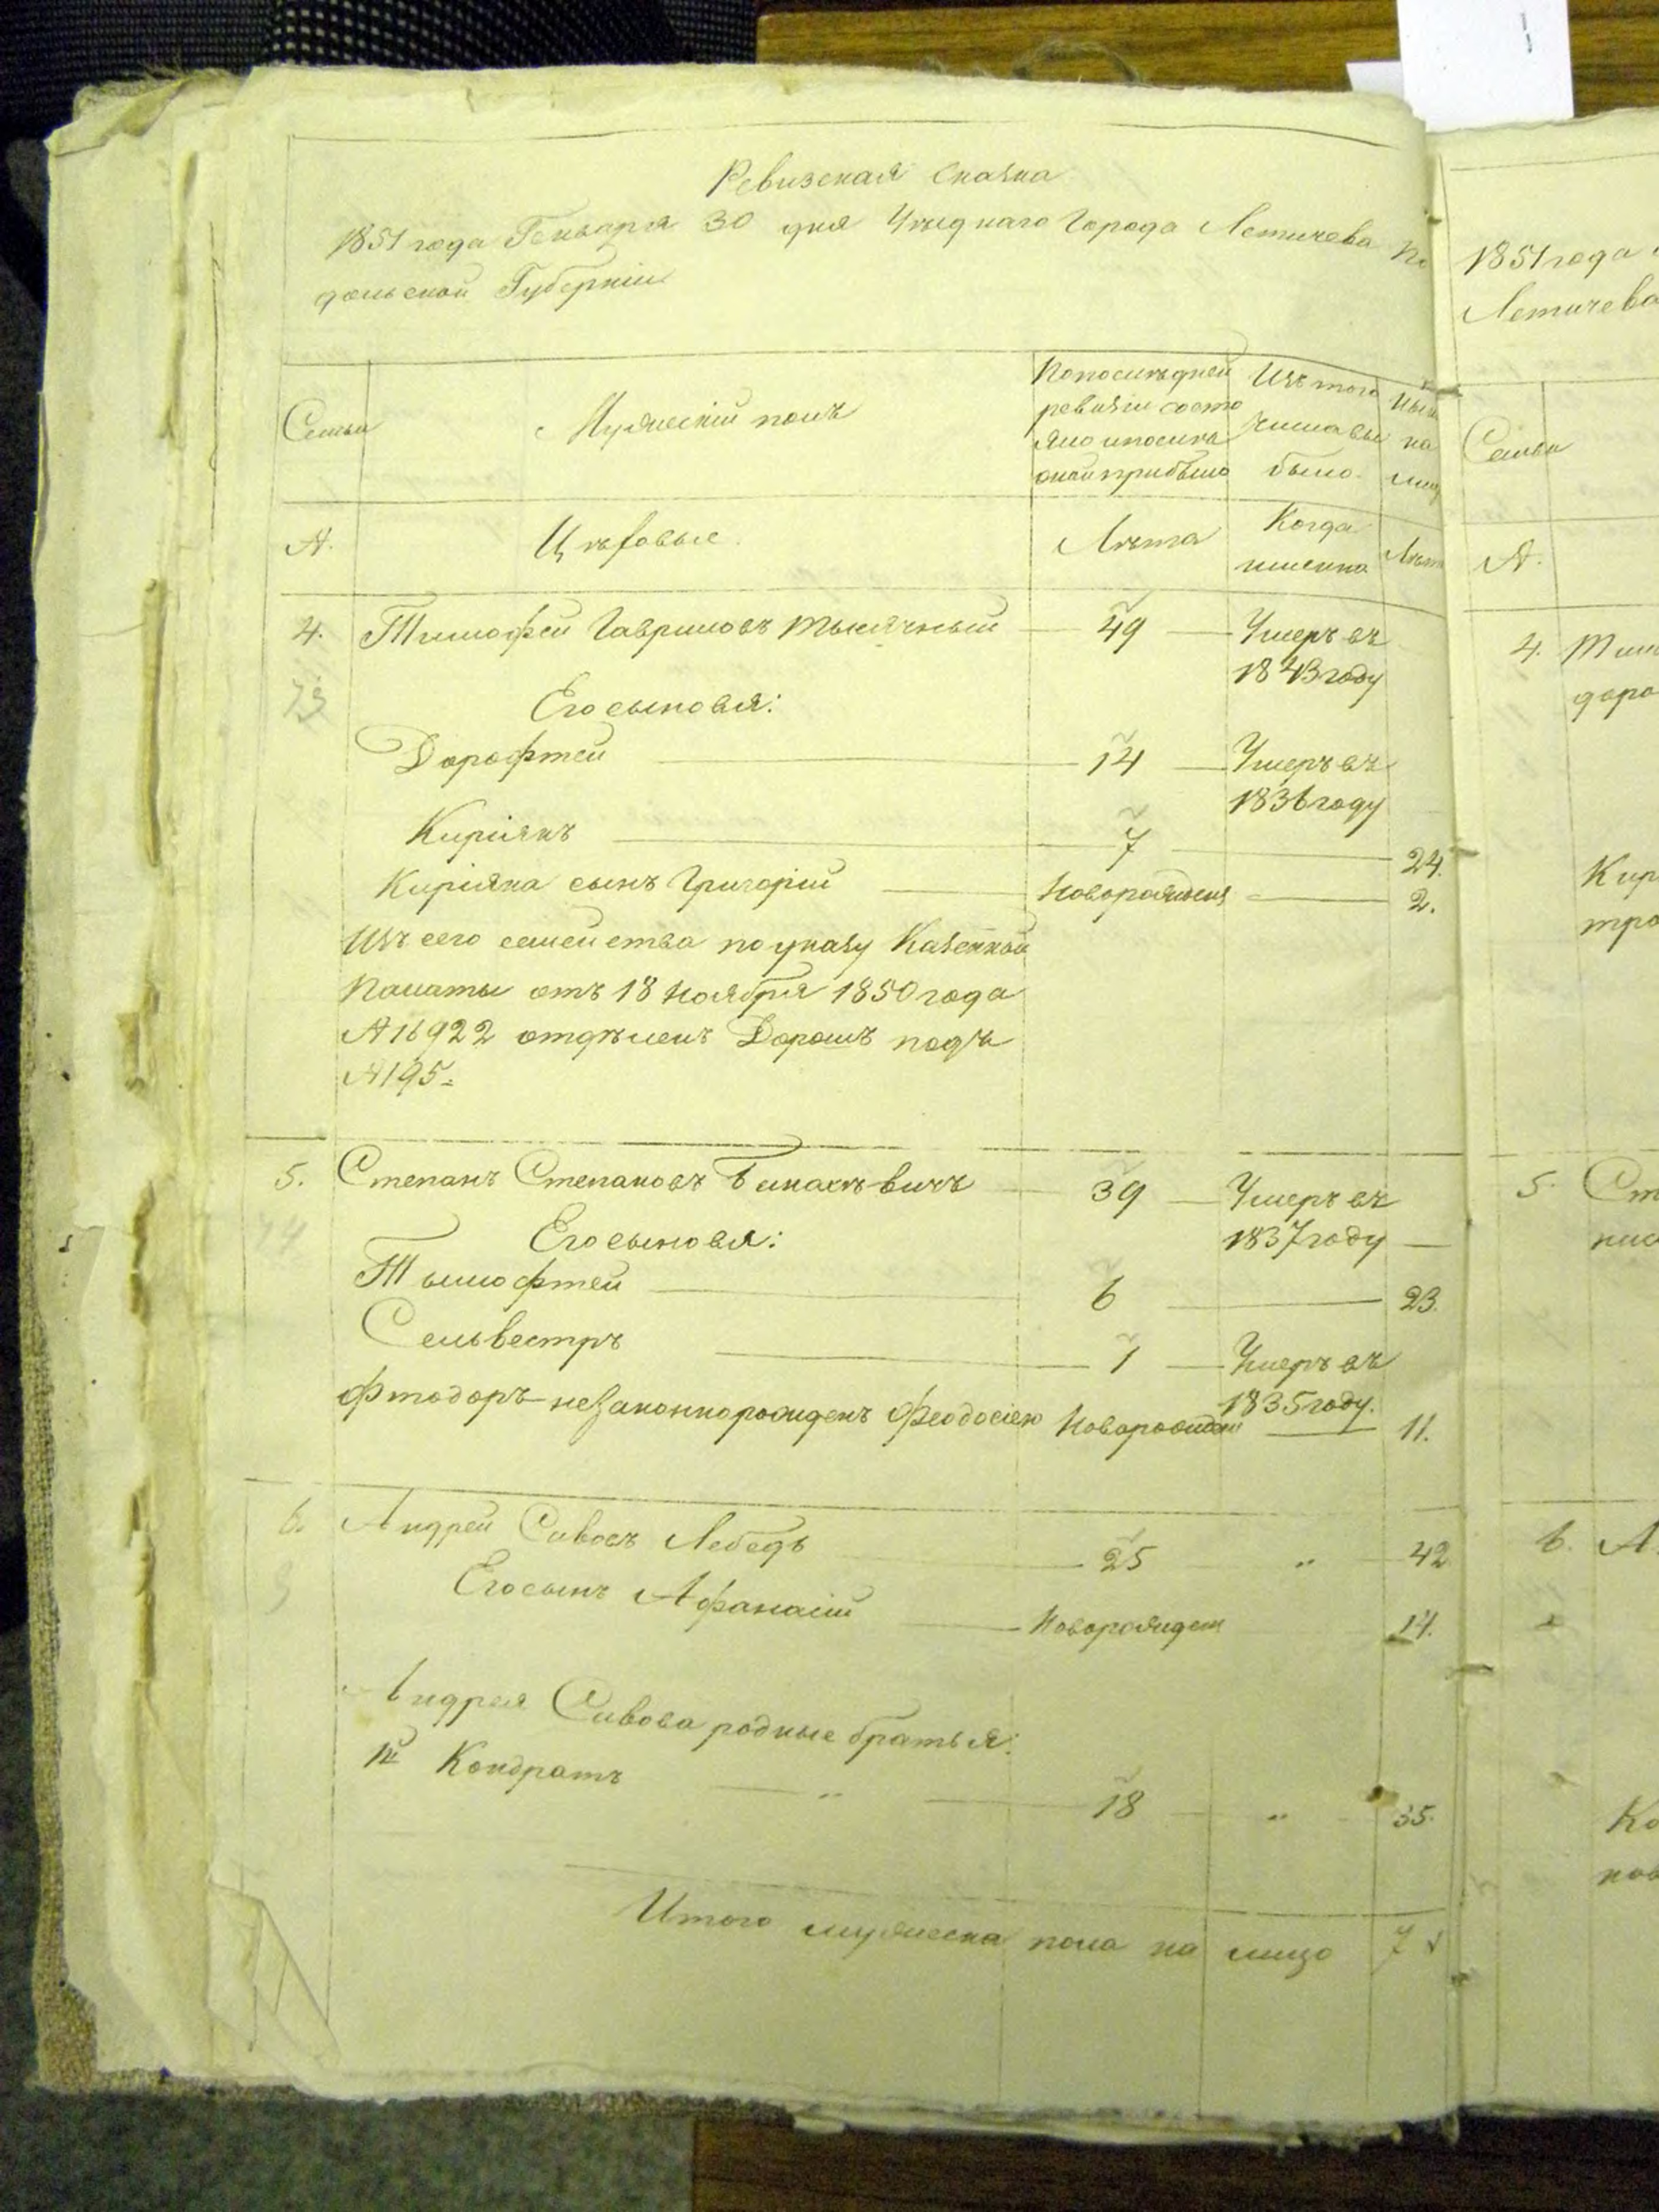 Ревизская Сказка
1851 года Генваря 30 дня Уѣзднаго Города Летичева По
дольской Губерніи
Семьи
Мужескій полъ
По послѣдней
ревизіи состо
яло и послѣ
оной прибыло
Изъ того
числа вы
было.
Нын
на
лиц
№.
Цѣховые.
Лѣта
Когда
имянно
Лѣт
4. Тимофей Гавриловъ Тысячный 49 Умеръ въ
1843 году
73
Его сыновья:
Дорофтей 14 Умеръ въ
1836 году
Киріякъ 7 24.
Киріяка сынъ Григорій Новорожденъ 2.
Изъ сего семейства по указу Казенной
Палаты отъ 18 Ноября 1850 года
№ 16922 отдѣленъ Дорошъ подъ
№ 195.
5. Степанъ Степановъ 39 Умеръ въ
74
Его сыновья:
1837 году
Тымофтей 6 23.
Сельвестръ 1 Умеръ въ
1835 году.
Фтодоръ незаконнорожденъ Феодосіею Новорожден 11.
6. Андрей Савовъ Лебедь 25 " 42
Его сынъ Афанасій Новорожден 14.
Андрея Савова родные братья:
1й Кондратъ " 18 " 35.
Итого мужеска пола на лицо 7
1851 года
Летичева
Семьи
№.
4. Тим
доро
Кир
тро
5. Ст
6. А
Ко